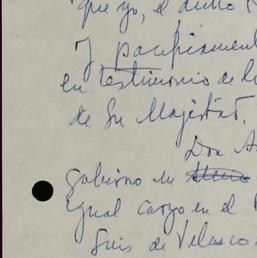 que yo, el dicho
y pacificament
en testimonio de
de Su Majestad.
Don A
Gobierno en
igual cargo en el
Luis de Velasco